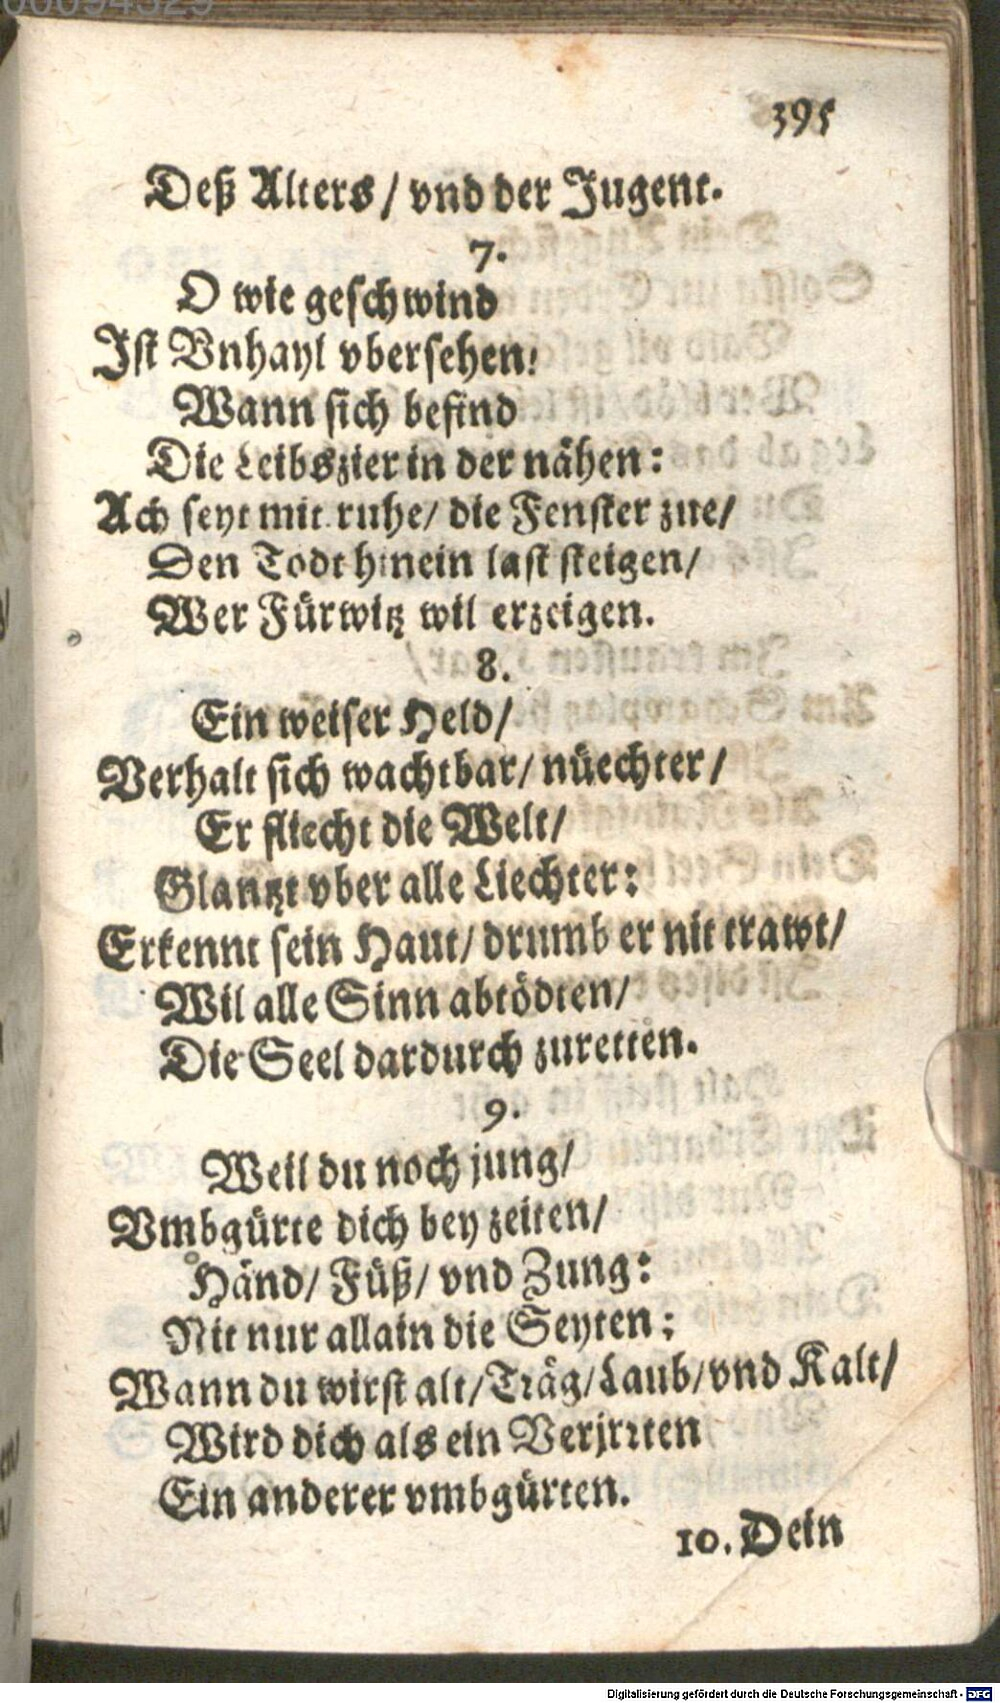 00094329
395
Deß Alters / vnd der Jugent.
7.
O wie geschwind
Ist Vnhayl vbersehen!
Wann sich befind
Die Leibszier in der nähen:
Ach seyt mit ruhe / die Fenster zue /
Den Todt hinein last steigen /
Wer Fürwitz wil erzeigen.
8.
Ein weiser Held /
Verhalt sich wachtbar / nüechter /
Er fliecht die Welt /
Glantzt vber alle Liechter:
Erkennt sein Haut / drumb er nit trawt /
Wil alle Sinn abtödten /
Die Seel dardurch zuretten.
9.
Weil du noch jung /
Vmbgürte dich bey zeiten /
Händ / Füß / vnd Zung:
Nit nur allain die Seyten:
Wann du wirst alt / Träg / Laub / vnd Kalt /
Wird dich als ein Verjrrten
Ein anderer vmbgürten.
10. Dein
Digitalisierung gefördert durch die Deutsche Forschungsgemeinschaft - DFG